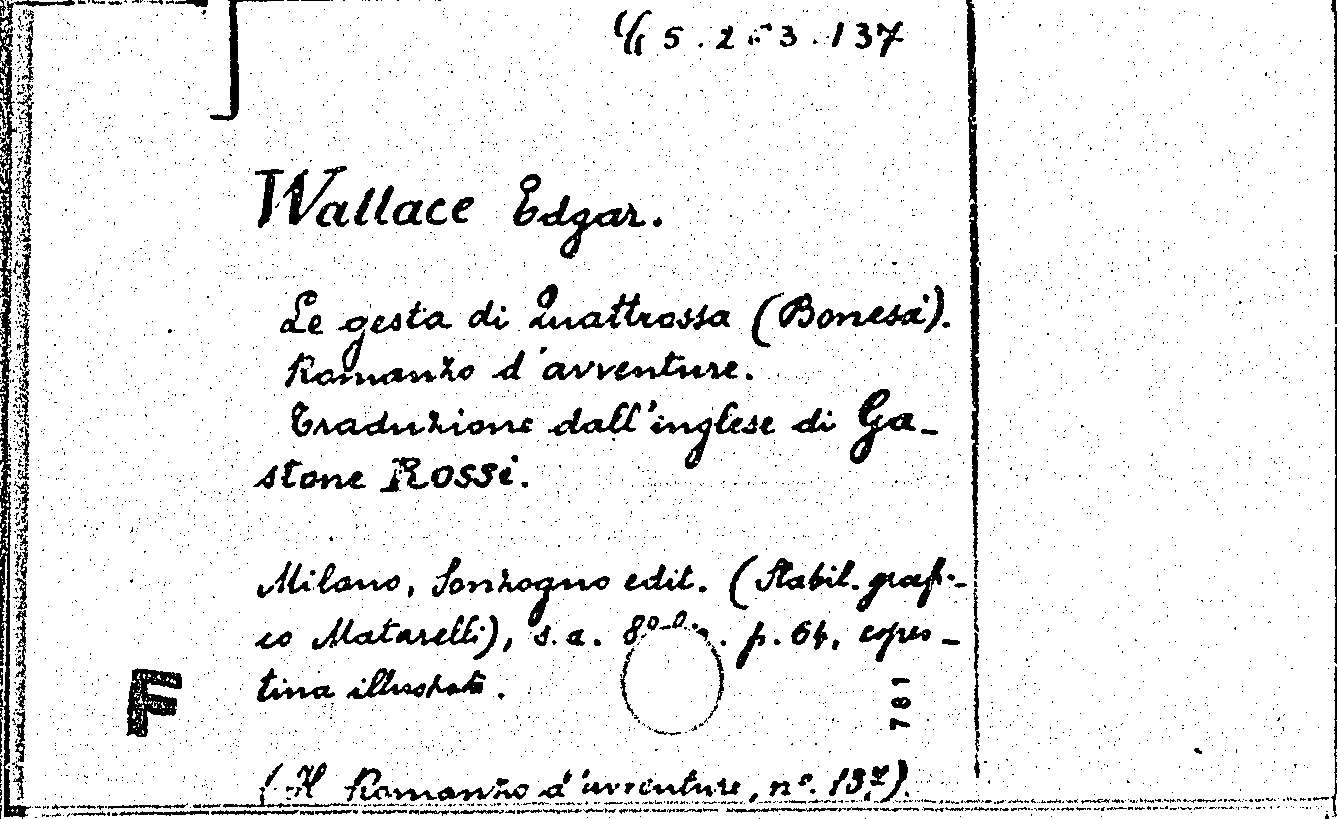 5.263.137
Wallace Edgar.
Le gesta di Quattrossa (Bonesa).
Romanzo d'avventure.
Traduzione dall'inglese di Ga-
stone Rossi.
Milano, Sonzogno edit. (Stabil. grafi-
co Matarelli), s.a. 8° p. 64, coper-
tina illustrata.
F
781
(Il Romanzo d'avventure, n°. 137).